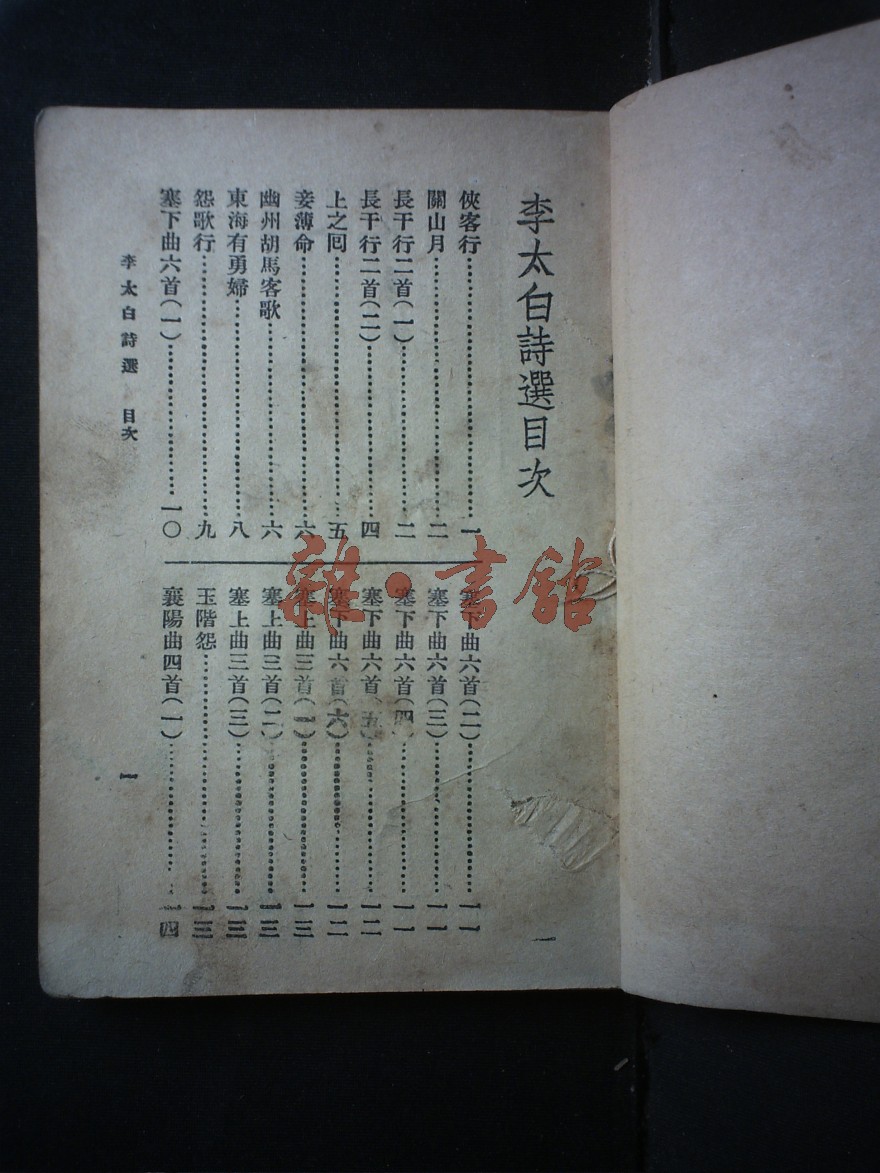 李太白詩選目次
俠客行…………一
關山月…………二
長干行二首(一)…………二
長干行二首(二)…………四
上之回…………五
妾薄命…………六
幽州胡馬客歌…………六
東海有勇婦…………八
怨歌行…………九
塞下曲六首(一)…………一〇
塞下曲六首(二)…………一一
塞下曲六首(三)…………一一
塞下曲六首(四)…………一一
塞下曲六首(五)…………一二
塞下曲六首(六)…………一二
塞上曲三首(一)…………一三
塞上曲三首(二)…………一三
塞上曲三首(三)…………一三
玉階怨…………一三
襄陽曲四首(一)…………一四
李太白詩選 目次
一
一
雜·書館